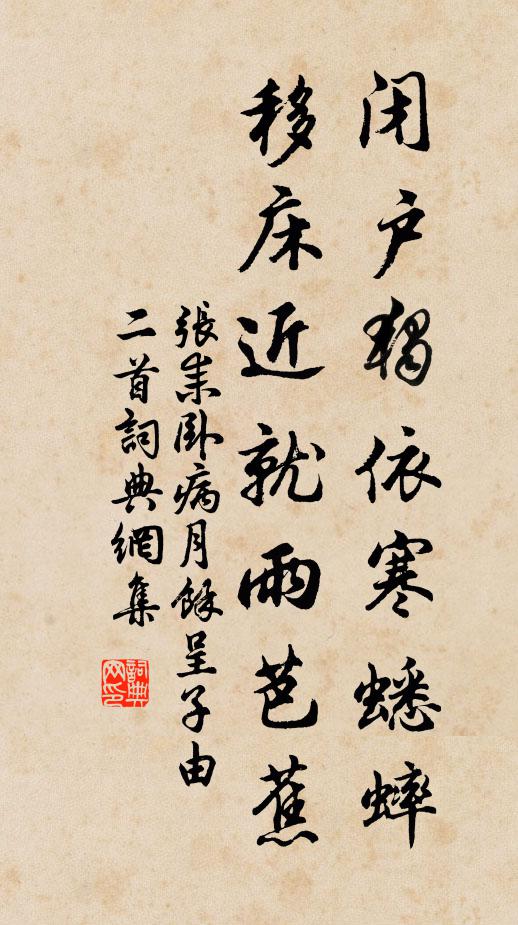 闭户独依寒蟋蟀
移床近就雨芭蕉
張耒卧病月餘呈子由
二首詞典網集
詞典
网印